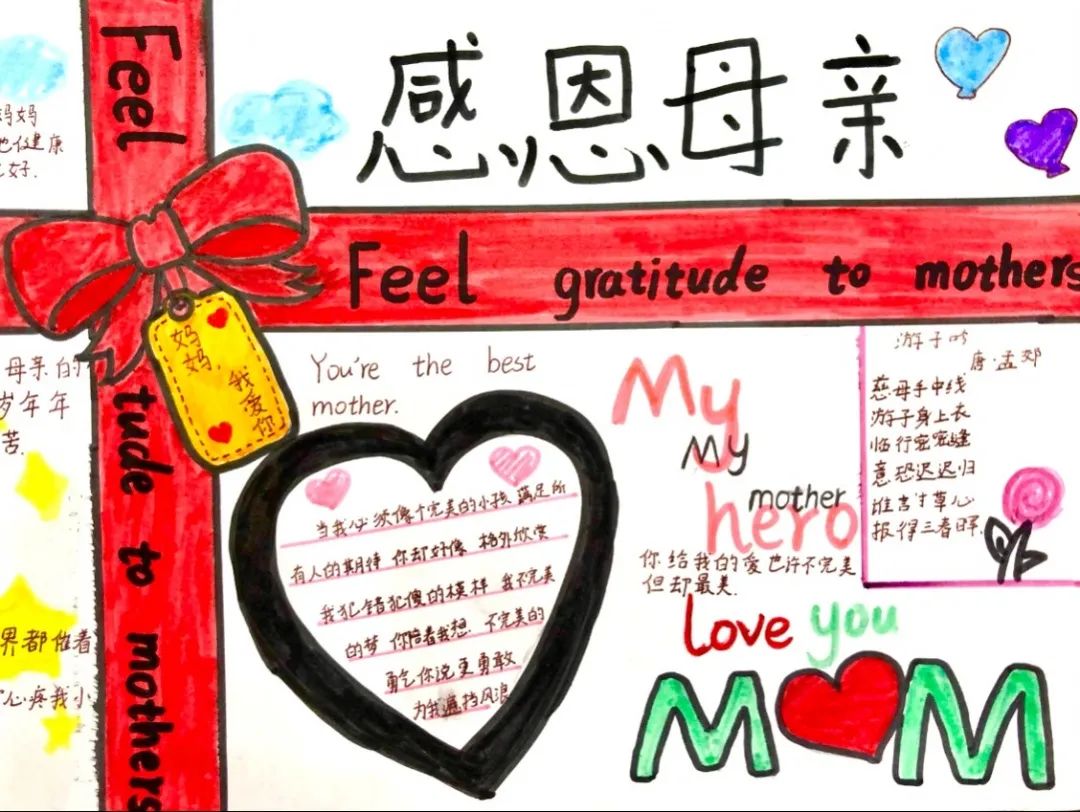 感恩母亲
Feel
Feel gratitude to mothers
tude to mothers
妈妈
健康
好.
妈妈,
我爱你
母亲的
岁年年
苦.
界都催着
心疼我小
You're the best
mother.
当我必须像个完美的小孩 满足所
有人的期待 你却好像 格外欣赏
我犯错犯傻的模样 我不完美
的梦 你陪着我想 不完美的
勇气 你说更勇敢
为我遮挡风浪
My
My
mother
hero
你给我的爱也许不完美
但却最美.
love you
MM
游子吟
唐·孟郊
慈母手中线
游子身上衣
临行密密缝
意恐迟迟归
谁言寸草心
报得三春晖.